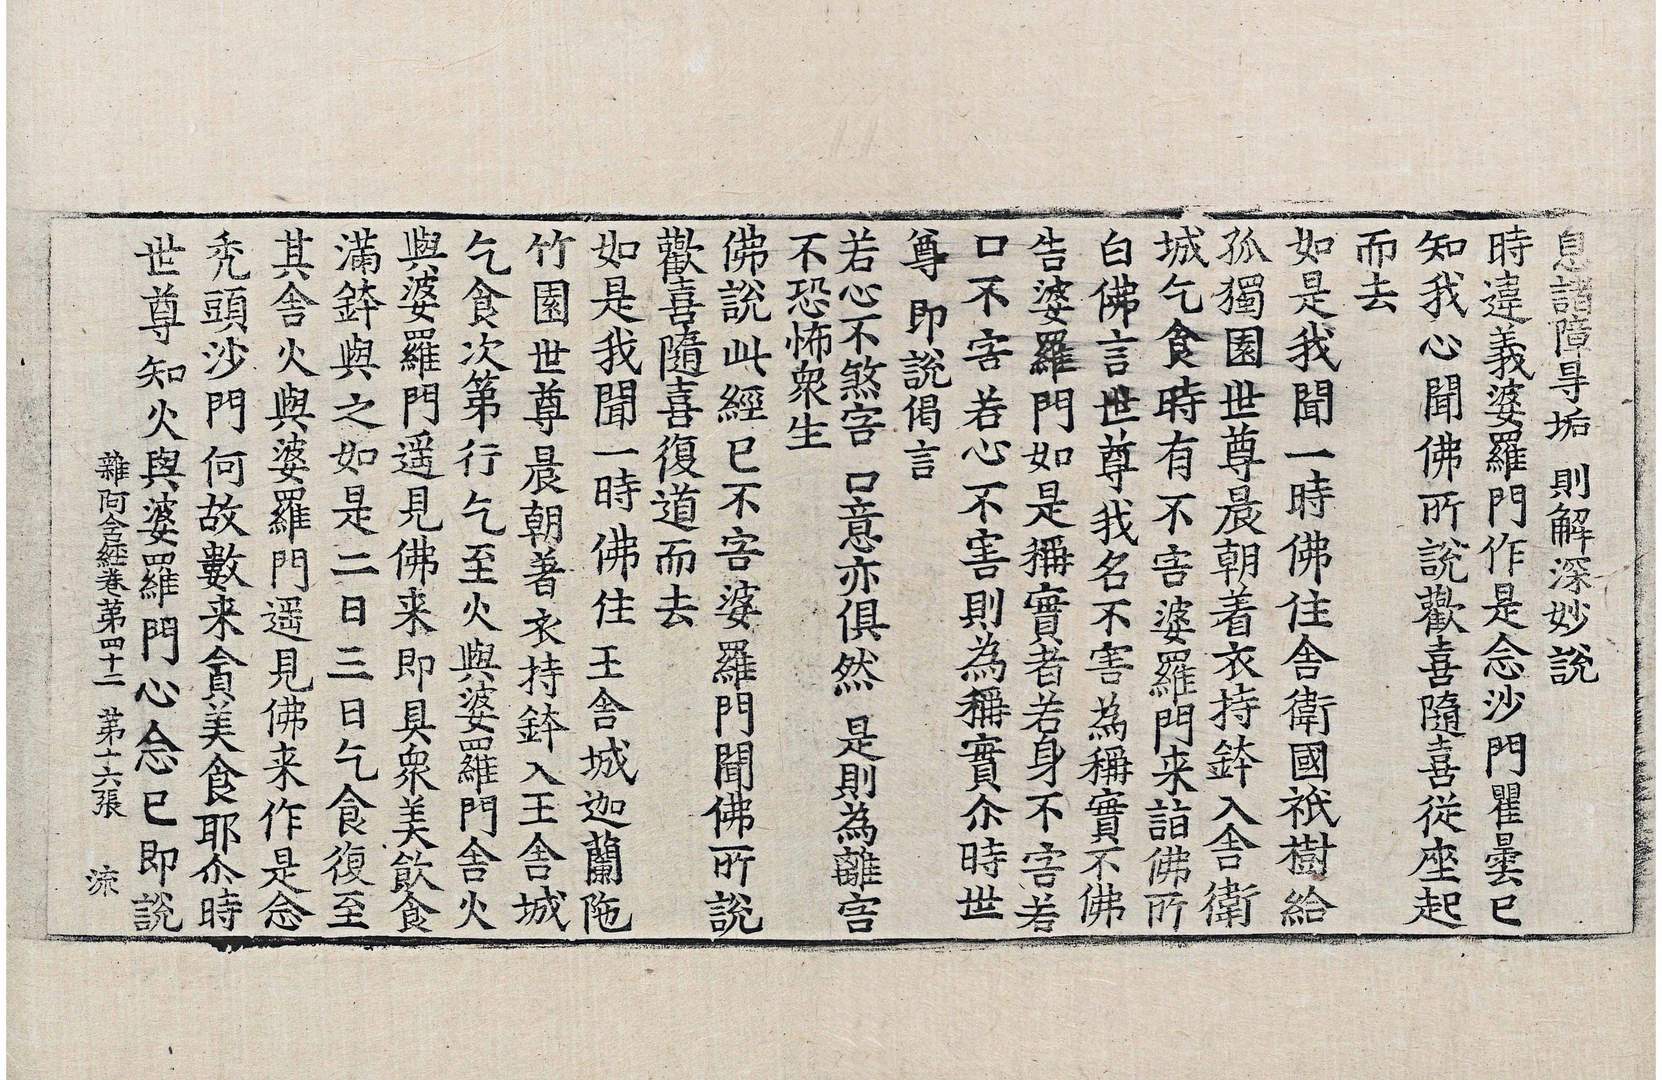 息諸障㝵垢 則解深妙說
時違義婆羅門作是念沙門瞿曇已
知我心聞佛所說歡喜隨喜從座起
而去
如是我聞一時佛住舍衛國祇樹給
孤獨園世尊晨朝着衣持鉢入舍衛
城乞食時有不害婆羅門来詣佛所
白佛言世尊我名不害為稱實不佛
告婆羅門如是稱實者若身不害若
口不害若心不害則為稱實尒時世
尊即說偈言
若心不煞害 口意亦俱然 是則為離害
不恐怖衆生
佛說此經已不害婆羅門聞佛所說
歡喜隨喜復道而去
如是我聞一時佛住王舍城迦蘭陁
竹園世尊晨朝著衣持鉢入王舍城
乞食次第行乞至火與婆羅門舍火
與婆羅門遥見佛来即具衆美飲食
滿鉢與之如是二日三日乞食復至
其舍火與婆羅門遥見佛来作是念
禿頭沙門何故數来貪美食耶尒時
世尊知火與婆羅門心念已即說
雜阿含經卷第四十二 第十六張 流